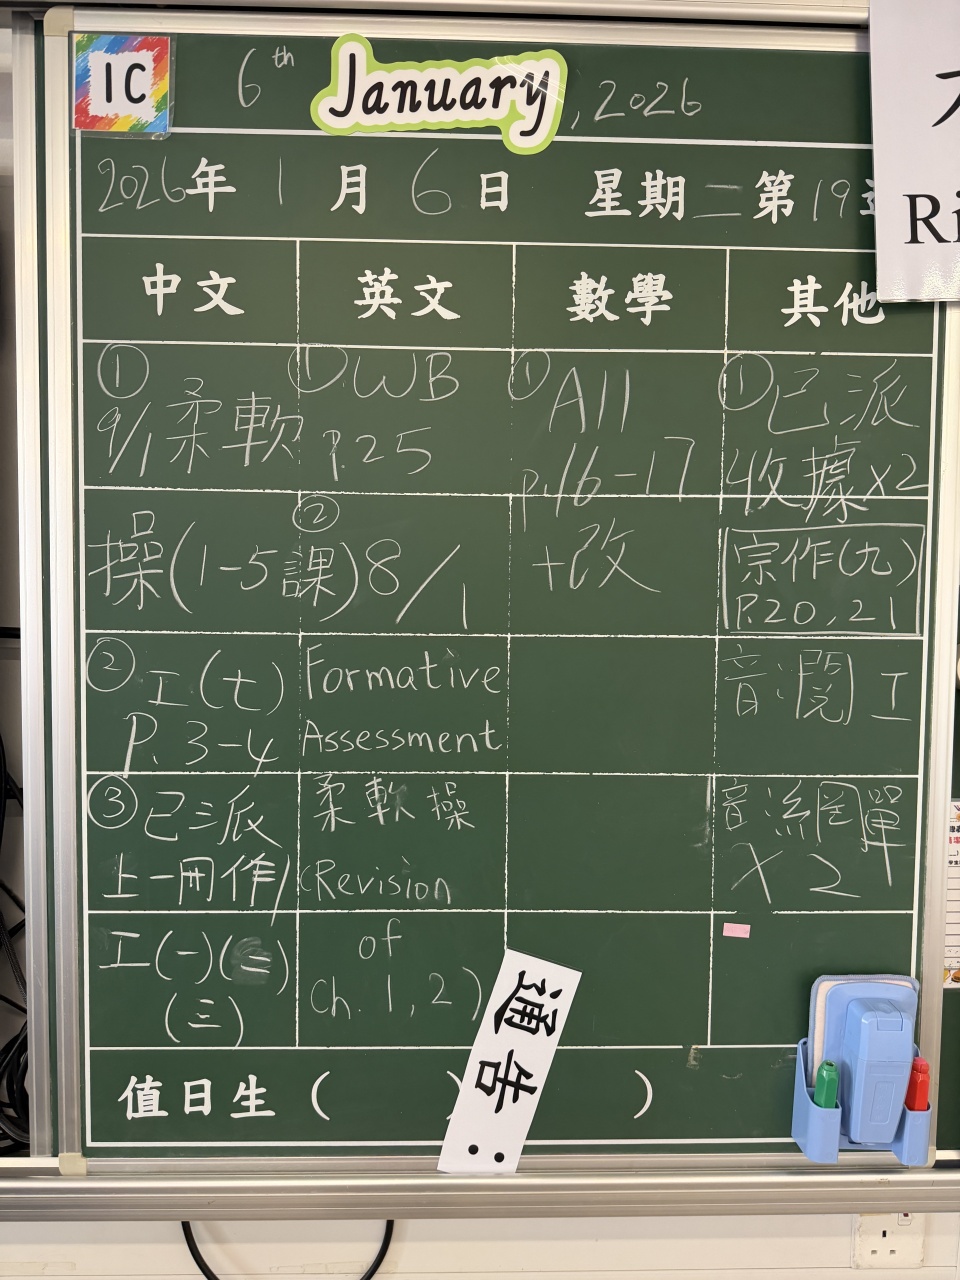 1C
6th January, 2026
2026年 1 月 6 日 星期二第19
中文
英文
數學
其他
① 9/1 柔軟
操(1-5課)
② 工(七)
P. 3-4
③ 已派
上一冊作
工(一)(二)
(三)
① WB
P.25
② 8/1
Formative
Assessment
柔軟操
(Revision
of
Ch. 1, 2)
① All
p.16-17
+改
① 已派
收據x2
宗作(九)
P.20, 21
音:閱 工
音:網單
X 2
值日生 ( )
通告:
Ri